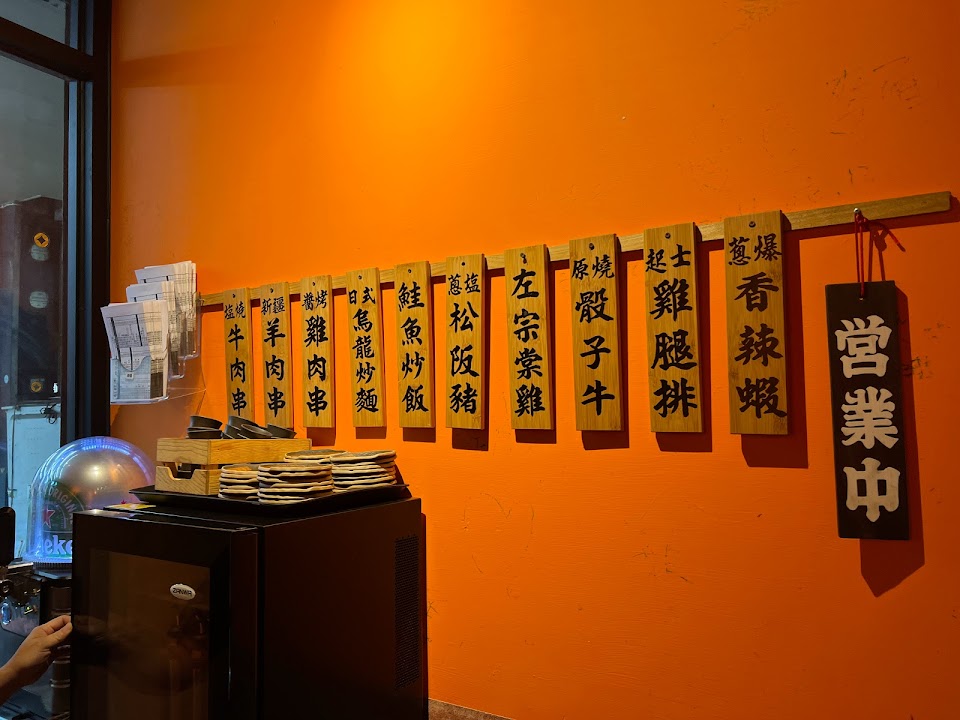 塩燒牛肉串
新疆羊肉串
醬烤雞肉串
日式烏龍炒麵
鮭魚炒飯
蔥塩松阪豬
左宗棠雞
原燒骰子牛
起士雞腿排
蔥爆香辣蝦
営業中
ZANWA